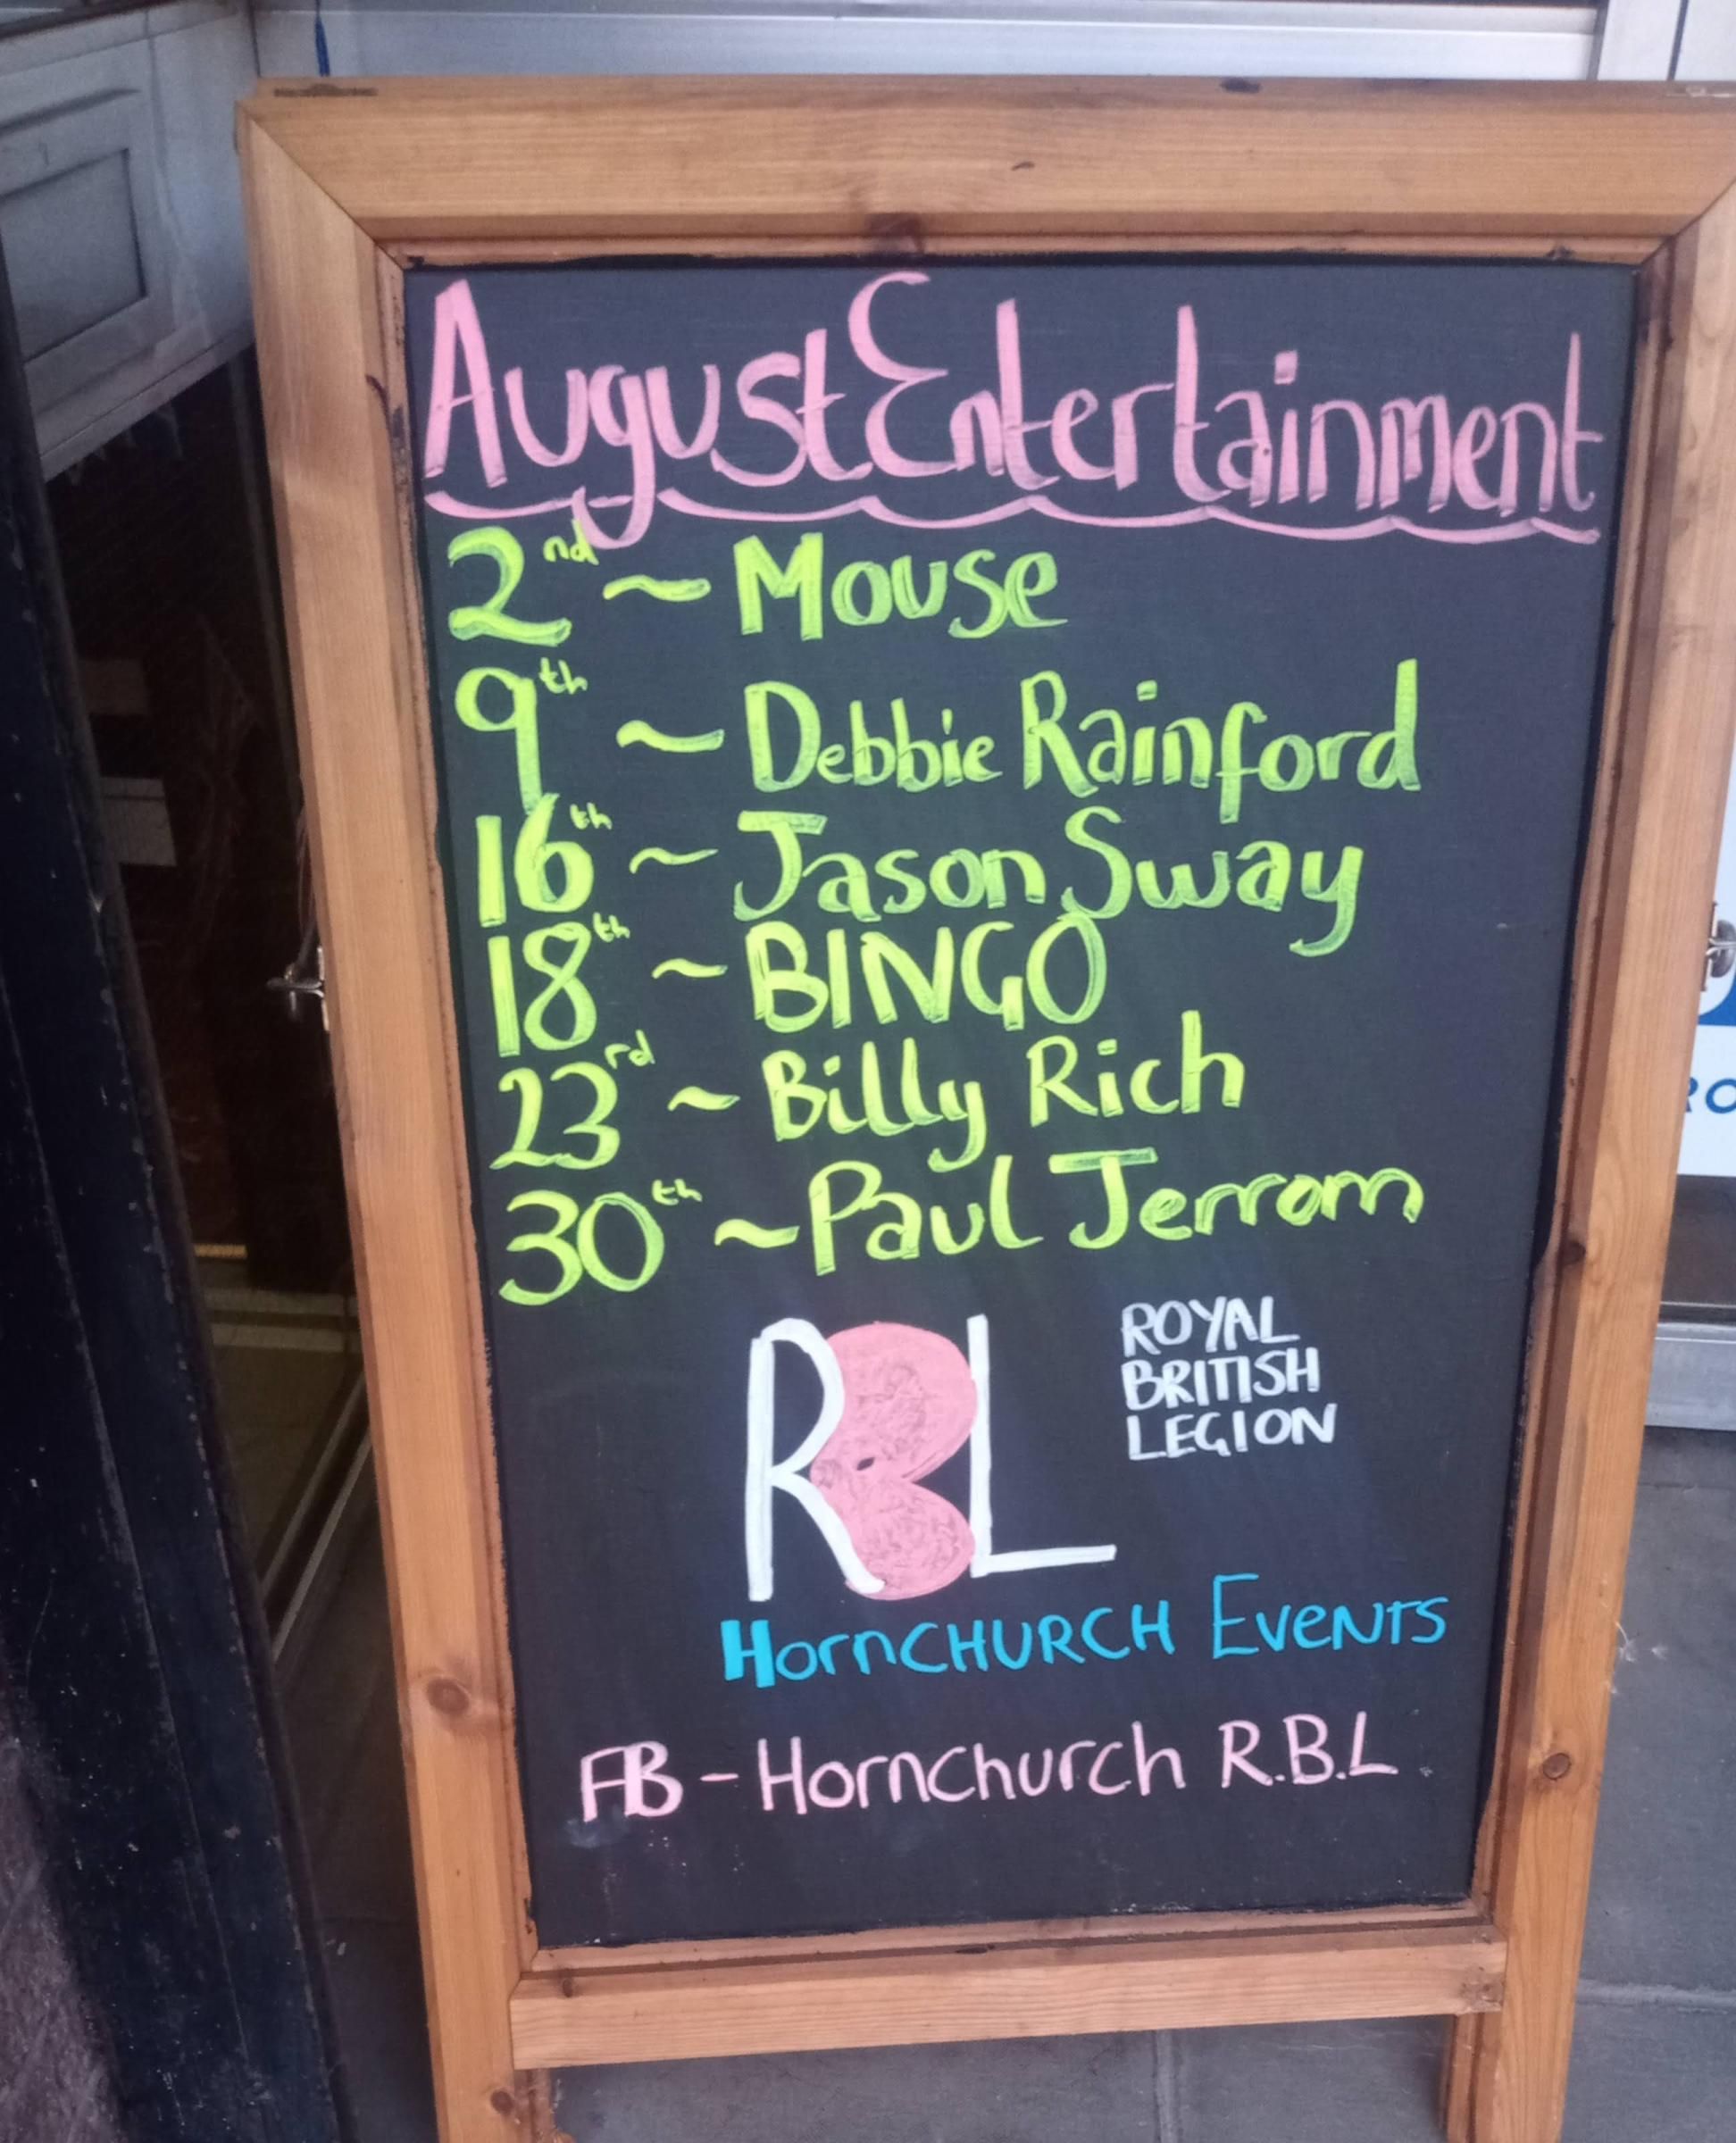 August Entertainment
2nd ~ Mouse
9th ~ Debbie Rainford
16th ~ Jason Sway
18th ~ BINGO
23rd ~ Billy Rich
30th ~ Paul Jerrom
RBL
ROYAL
BRITISH
LEGION
HornCHURCH EVENTS
FB - Hornchurch R.B.L